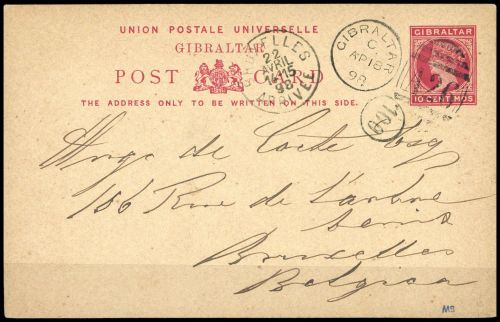 UNION POSTALE UNIVERSELLE
GIBRALTAR
POST CARD
THE ADDRESS ONLY TO BE WRITTEN ON THIS SIDE.
BRUXELLES
22
AVRIL
98
ARRIVEE
GIBRALTAR
C
AP 18
98
GIBRALTAR
10 CENTIMOS
Hugo de Cocte Esq
186 Rue de l'arbre
benis
Bruxelles
Belgica
MB